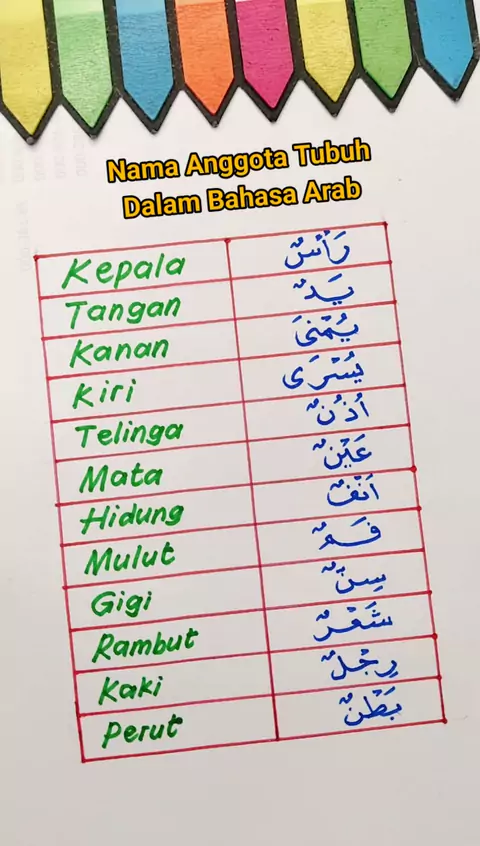 Nama Anggota Tubuh
Dalam Bahasa Arab
Kepala رَأْسٌ
Tangan يَدٌ
Kanan يُمْنَى
Kiri يُسْرَى
Telinga اُذُنٌ
Mata عَيْنٌ
Hidung اَنْفٌ
Mulut فَمٌ
Gigi سِنٌّ
Rambut شَعْرٌ
Kaki رِجْلٌ
Perut بَطْنٌ